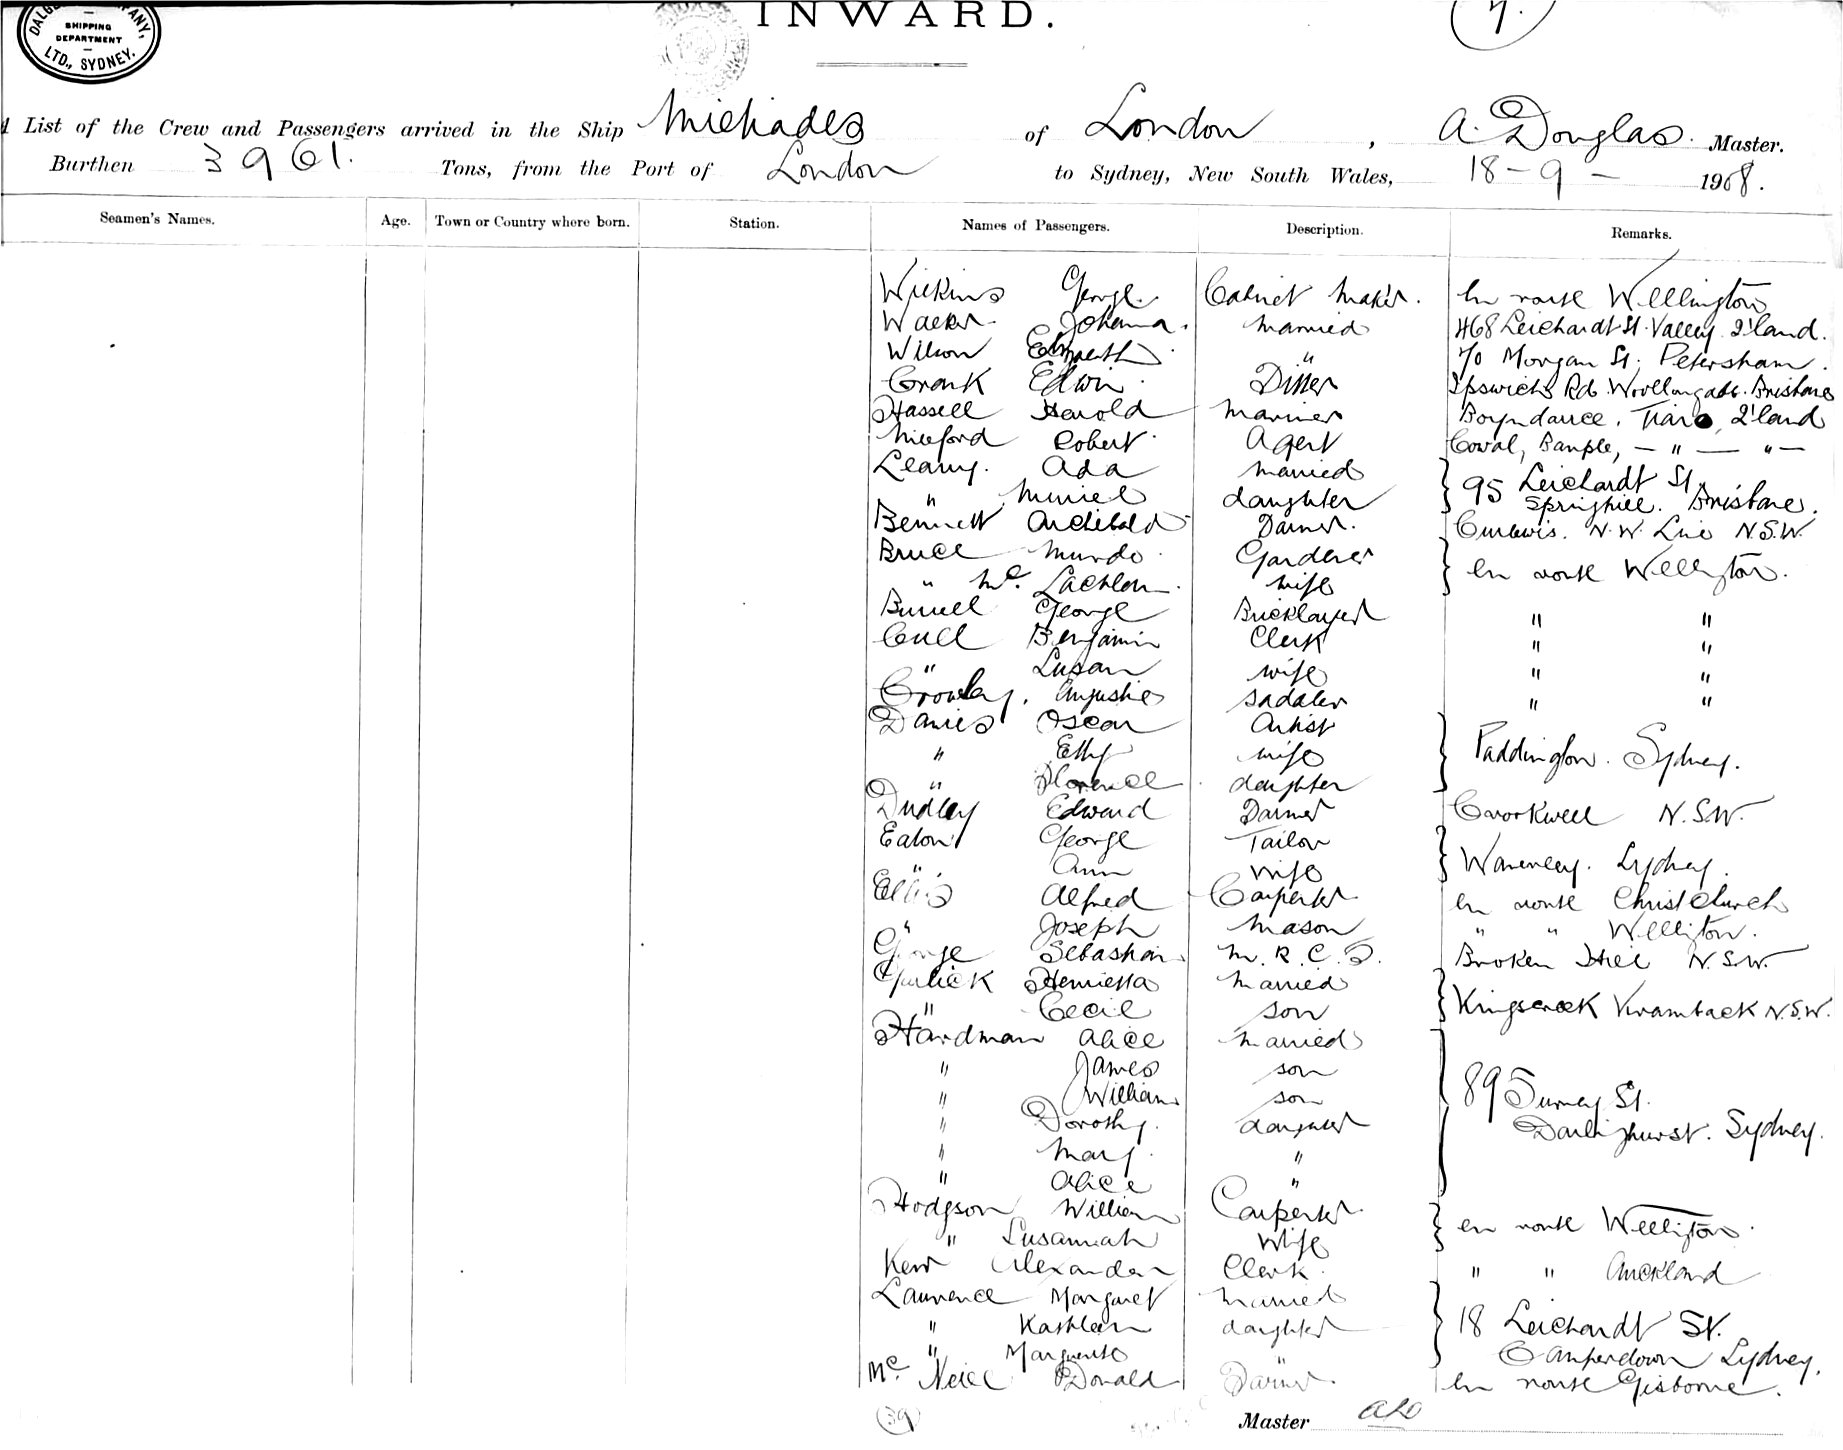 DALGETY COMPANY, LTD., SYDNEY.
SHIPPING DEPARTMENT
INWARD.
7.
List of the Crew and Passengers arrived in the Ship Miltiades of London, A. Douglas. Master.
Burthen 3961. Tons, from the Port of London to Sydney, New South Wales, 18-9-1908.
Seamen's Names. Age. Town or Country where born. Station. Names of Passengers. Description. Remarks.
Wilkins George Cabinet Maker. En route Wellington
Johanna. Married 468 Leichardt St. Valley. Q'land.
Wilson Elizabeth " 70 Morgan St. Petersham.
Crank Edwin Fitter Ipswich Rd. Woollongabba. Brisbane
Hassell Harold Mariner Tiaro, Q'land
Milford Robert Agent Bauple, — " — " —
Leamy. Ada Married } 95 Leichardt St
" Muriel daughter Springhill. Brisbane.
Bennett Archibald Farmer. Curlewis. N.W. Line N.S.W.
Bruce Murdo Gardener } En route Wellington.
" Mc. Lachlan wife
Burrell George Bricklayer " "
Cull Benjamin Clerk " "
" Susan wife " "
Crowley. Augustine Saddler " "
Davies Oscar Artist } Paddington. Sydney.
" Etty wife
" Florence daughter
Dudley Edward Farmer Crookwell N.S.W.
Eaton George Tailor } Waverley. Sydney.
" Ann wife
Ellis Alfred Carpenter En route Christchurch
" Joseph Mason " " Wellington.
George Sebastian M.R.C.S. Broken Hill N.S.W.
Garlick Henrietta Married } Kingscreek N.S.W.
" Cecil son
Hardman Alice Married } 89 Surrey St.
" James son Darlinghurst. Sydney.
" William son
" Dorothy. daughter
" Mary. "
" Alice "
Hodgson William Carpenter } en route Wellington.
" Susannah Wife
Kerr Alexander Clerk " " Auckland
Laurence Margaret Married } 18 Leichardt St.
" Kathleen daughter Camperdown Sydney.
" Marguerite "
Mc. Neill Donald Farmer En route Gisborne.
39
Master AD